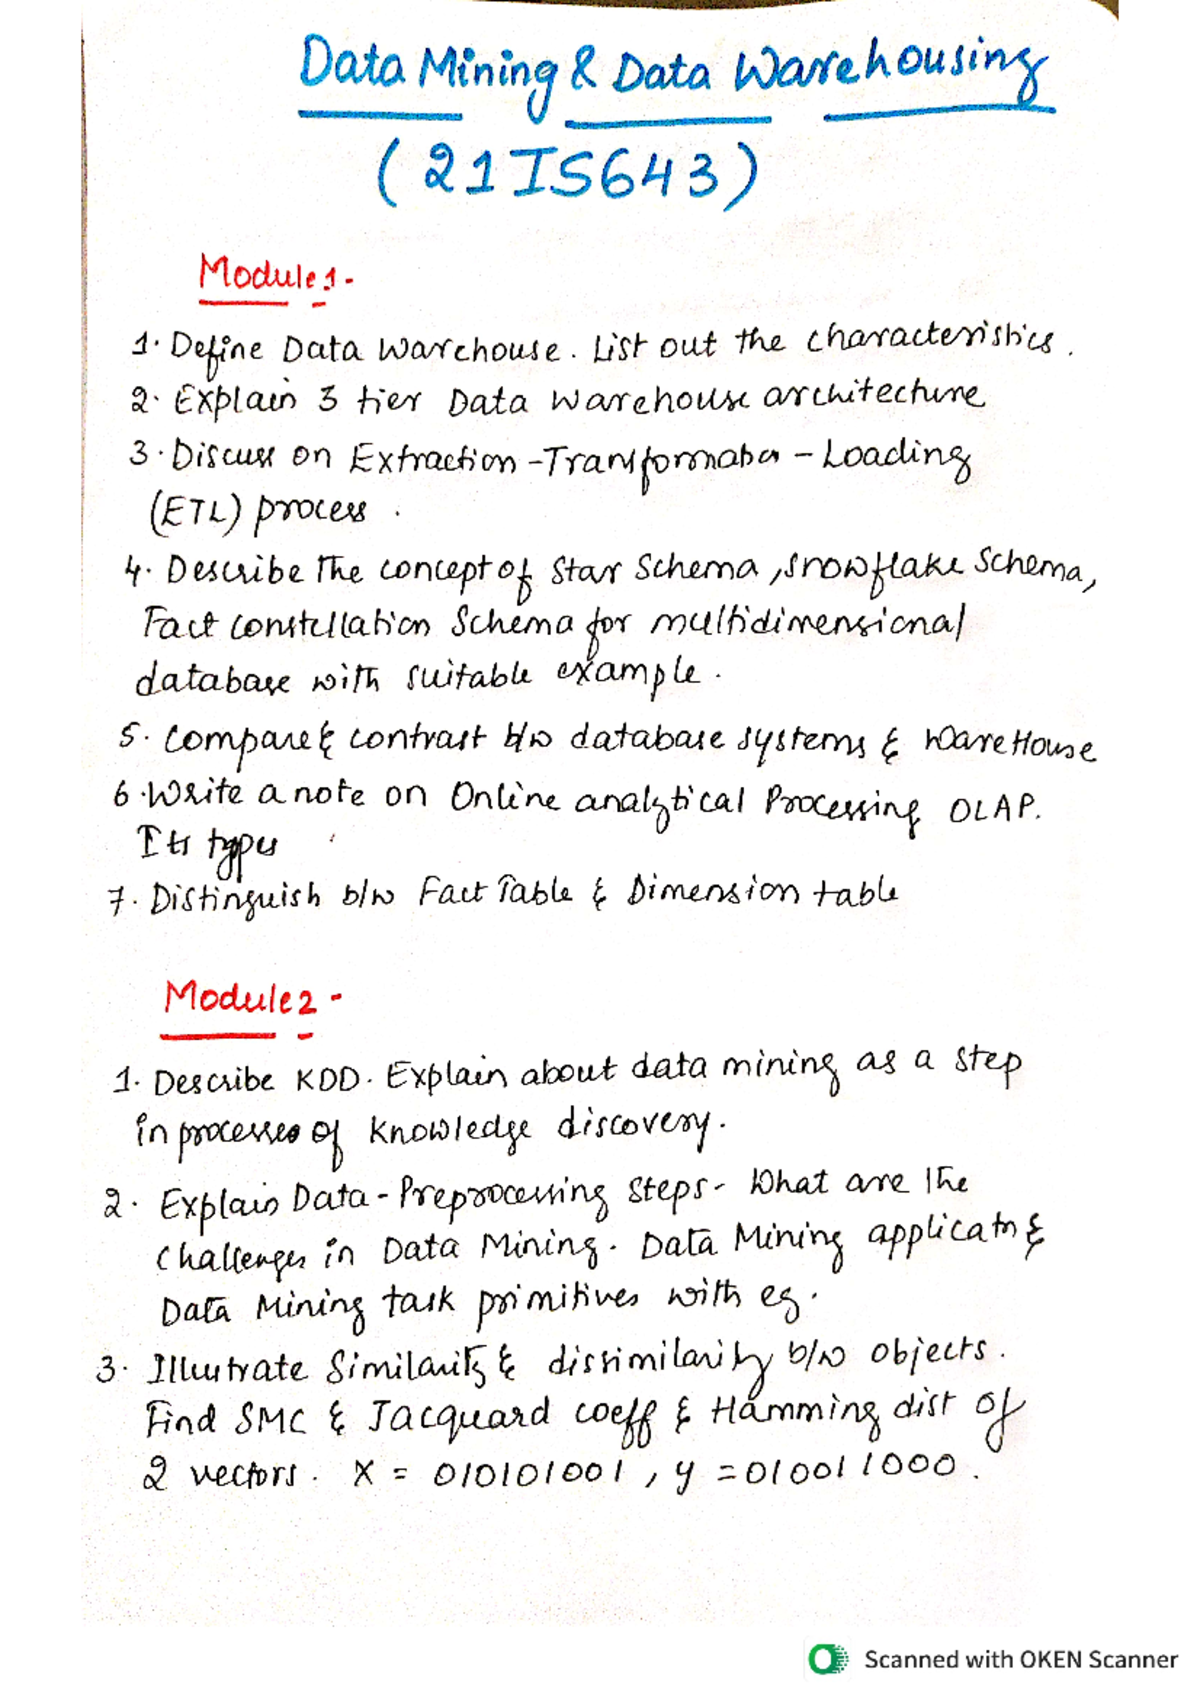 Data Mining & Data Warehousing
(21IS643)
Module 1 -
1. Define Data Warehouse. List out the characteristics.
2. Explain 3 tier Data Warehouse architecture
3. Discuss on Extraction - Transformation - Loading
(ETL) process.
4. Describe The concept of Star Schema, snowflake Schema,
Fact constellation Schema for multidimensional
database with suitable example.
5. Compare & contrast b/w database systems & WareHouse
6. Write a note on Online analytical Processing OLAP.
Its types
7. Distinguish b/w Fact Table & Dimension table
Module 2 -
1. Describe KDD. Explain about data mining as a step
in processes of knowledge discovery.
2. Explain Data - Preprocessing steps - What are The
Challenges in Data Mining. Data Mining applicatn &
Data Mining task primitives with eg.
3. Illustrate Similarity & dissimilarity b/w objects.
Find SMC & Jacquard coeff & Hamming dist of
2 vectors. X = 010101001, y = 010011000.
Scanned with OKEN Scanner